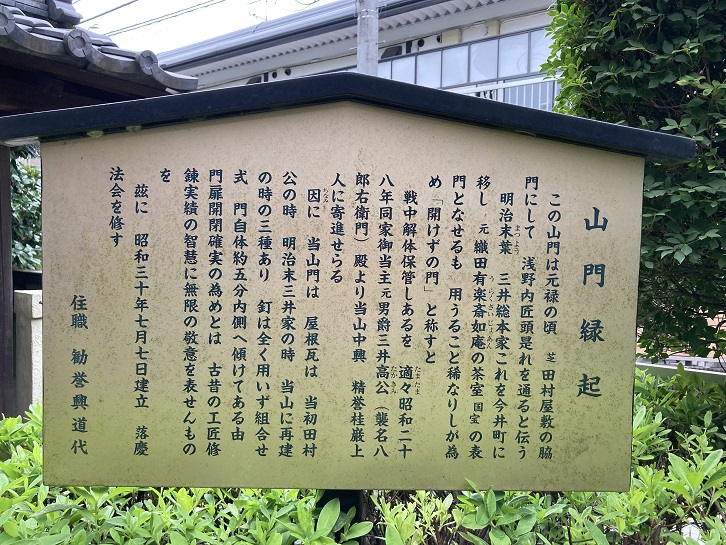 山門縁起
この山門は元禄の頃 芝 田村屋敷の脇
門にして 浅野内匠頭是れを通ると伝う
明治末葉 三井総本家これを今井町に
移し 元 織田有楽斎如庵の茶室 国宝 の表
門となせるも 用うること稀なりしが為
め「開けずの門」と称すと
戦中解体保管しあるを 適々昭和二十
八年同家御当主元男爵三井高公(襲名八
郎右衛門)殿より当山中興 精誉桂巌上
人に寄進せらる
因に 当山門は 屋根瓦は 当初田村
公の時 明治末三井家の時 当山に再建
の時の三種あり 釘は全く用いず組合せ
式 門自体約五分内側へ傾けてある由
門扉開閉確実の為めとは 古昔の工匠修
錬実績の智慧に無限の敬意を表せんもの
を
茲に 昭和三十年七月七日建立 落慶
法会を修す
住職 勧誉興道代